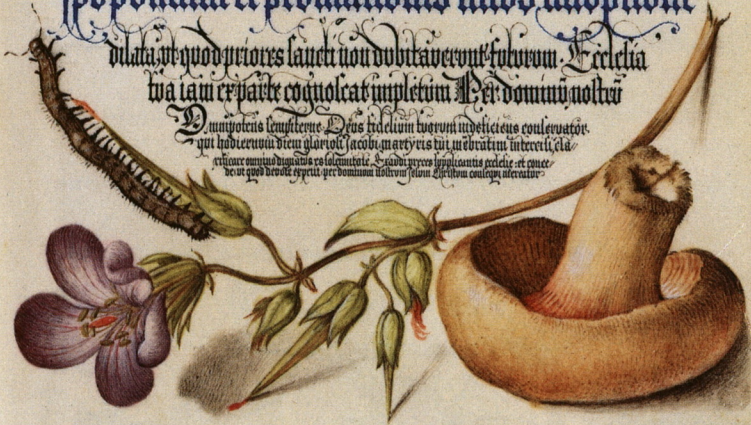 dilata, vt quod priores sancti non dvbitaverunt fvtvrvm. Ecclesia
tva iam ex parte cognoscat impletum Per dominv nostrv
Omnipotens sempiterne Deus fidelium tuorum indeficiens conservator.
qui hodiernum diem gloriosi Jacobi martyris tui
solemnitate. Exaudi preces supplicantis ecclesie et conce
de vt quod devote expetit. per dominum nostrum Jesum Christum consequi mereatur.